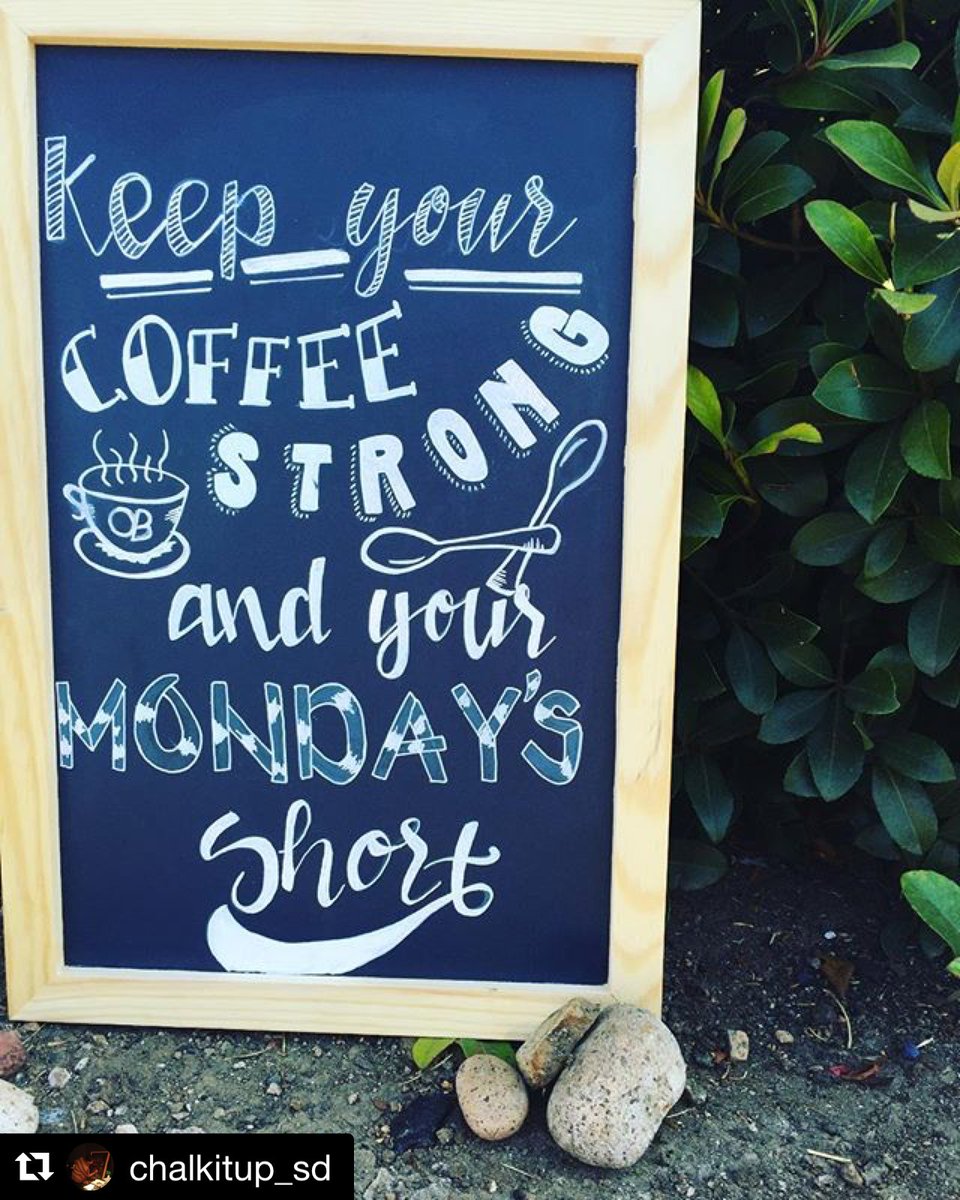 Keep your
COFFEE
STRONG
OB
and your
MONDAY'S
Short
chalkitup_sd